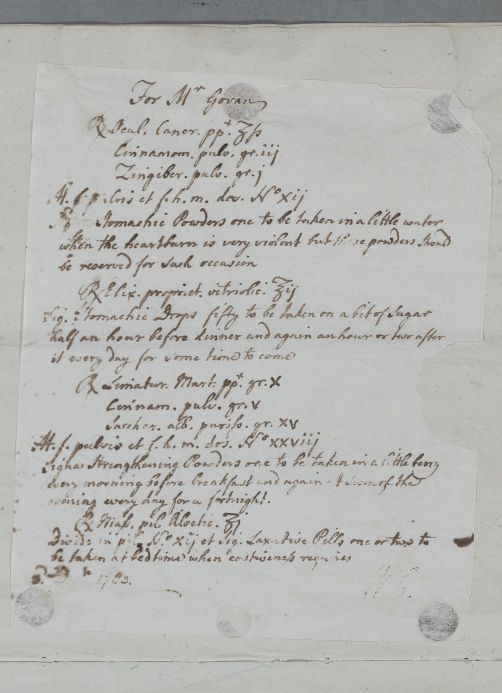 For Mr Govan
℞ Ocul. Cancr. ppt. ʒſs
Cinnamom. pulv. gr. iij
Zingiber. pulv. gr. j
M. f. pulvis et f. h. m. dos. No xij
Stomachic Powders one to be taken in a little water
when the heartburn is very violent but these powders should
be reserved for such occasion
℞ Elix. propriet. vitriolic. ℥ij
Sig. Stomachic Drops fifty to be taken on a bit of Sugar
half an hour before dinner and again an hour or two after
it every day for some time to come
℞ Limatur. Mart. ppt. gr. x
Cinnam. pulv. gr. v
Sacchar. alb. puriss. gr. xv
M. f. pulvis et f. h. m. dos. No xxviij
Signa Strengthening Powders one to be taken in a little berry
every morning before breakfast and again at seven of the
evening every day for a fortnight.
℞ Mass. pil. Aloetic. ʒj
Divide in pil. No xij et Sig. Laxative Pills one or two to
be taken at bedtime when costiveness requires
1783.